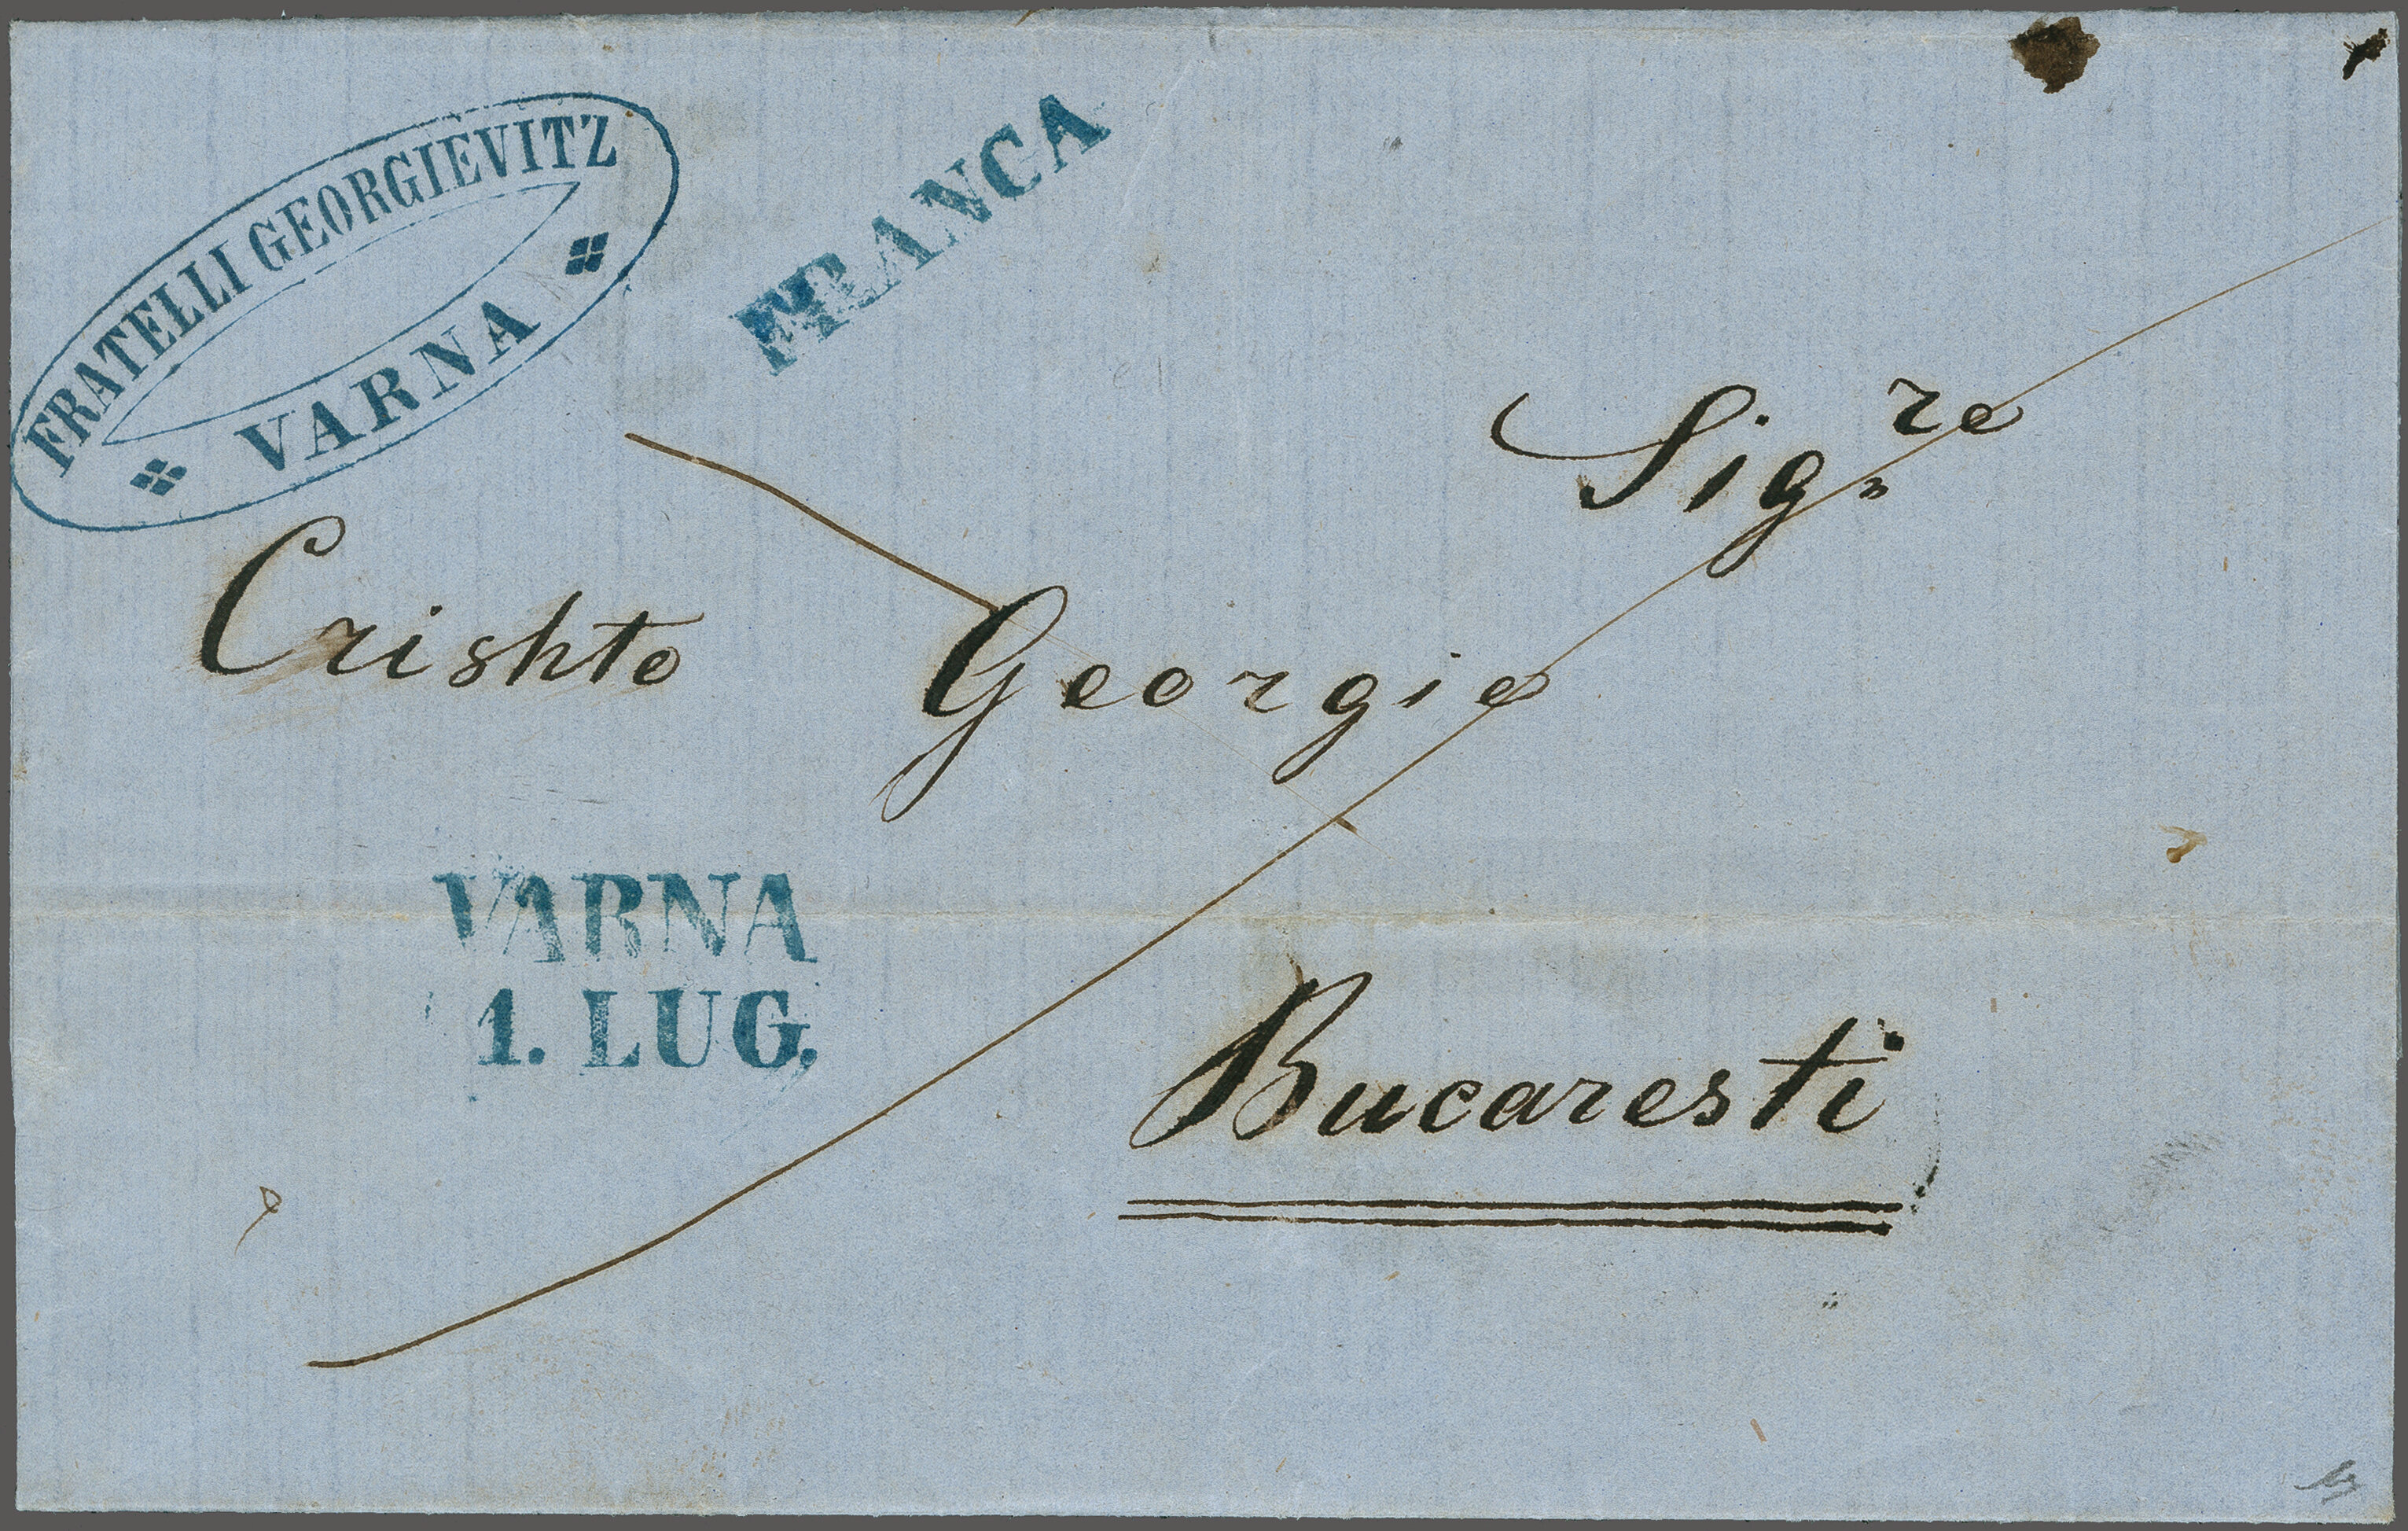 FRATELLI GEORGIEVITZ
VARNA
FRANCA
Sigre
Crishto Georgio
VARNA
1. LUG.
Bucaresti